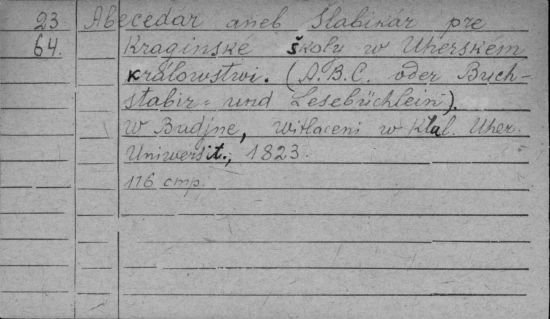 23 Abecedar aneb Slabikár pre
64. Kraginské školy w Uherském
králowstwi. (A.B.C. oder Buch-
stabir= und Lesebüchlein).
W Budjne, witlaceni w Klal. Uher.
Uniwersit., 1823.
116 стр.